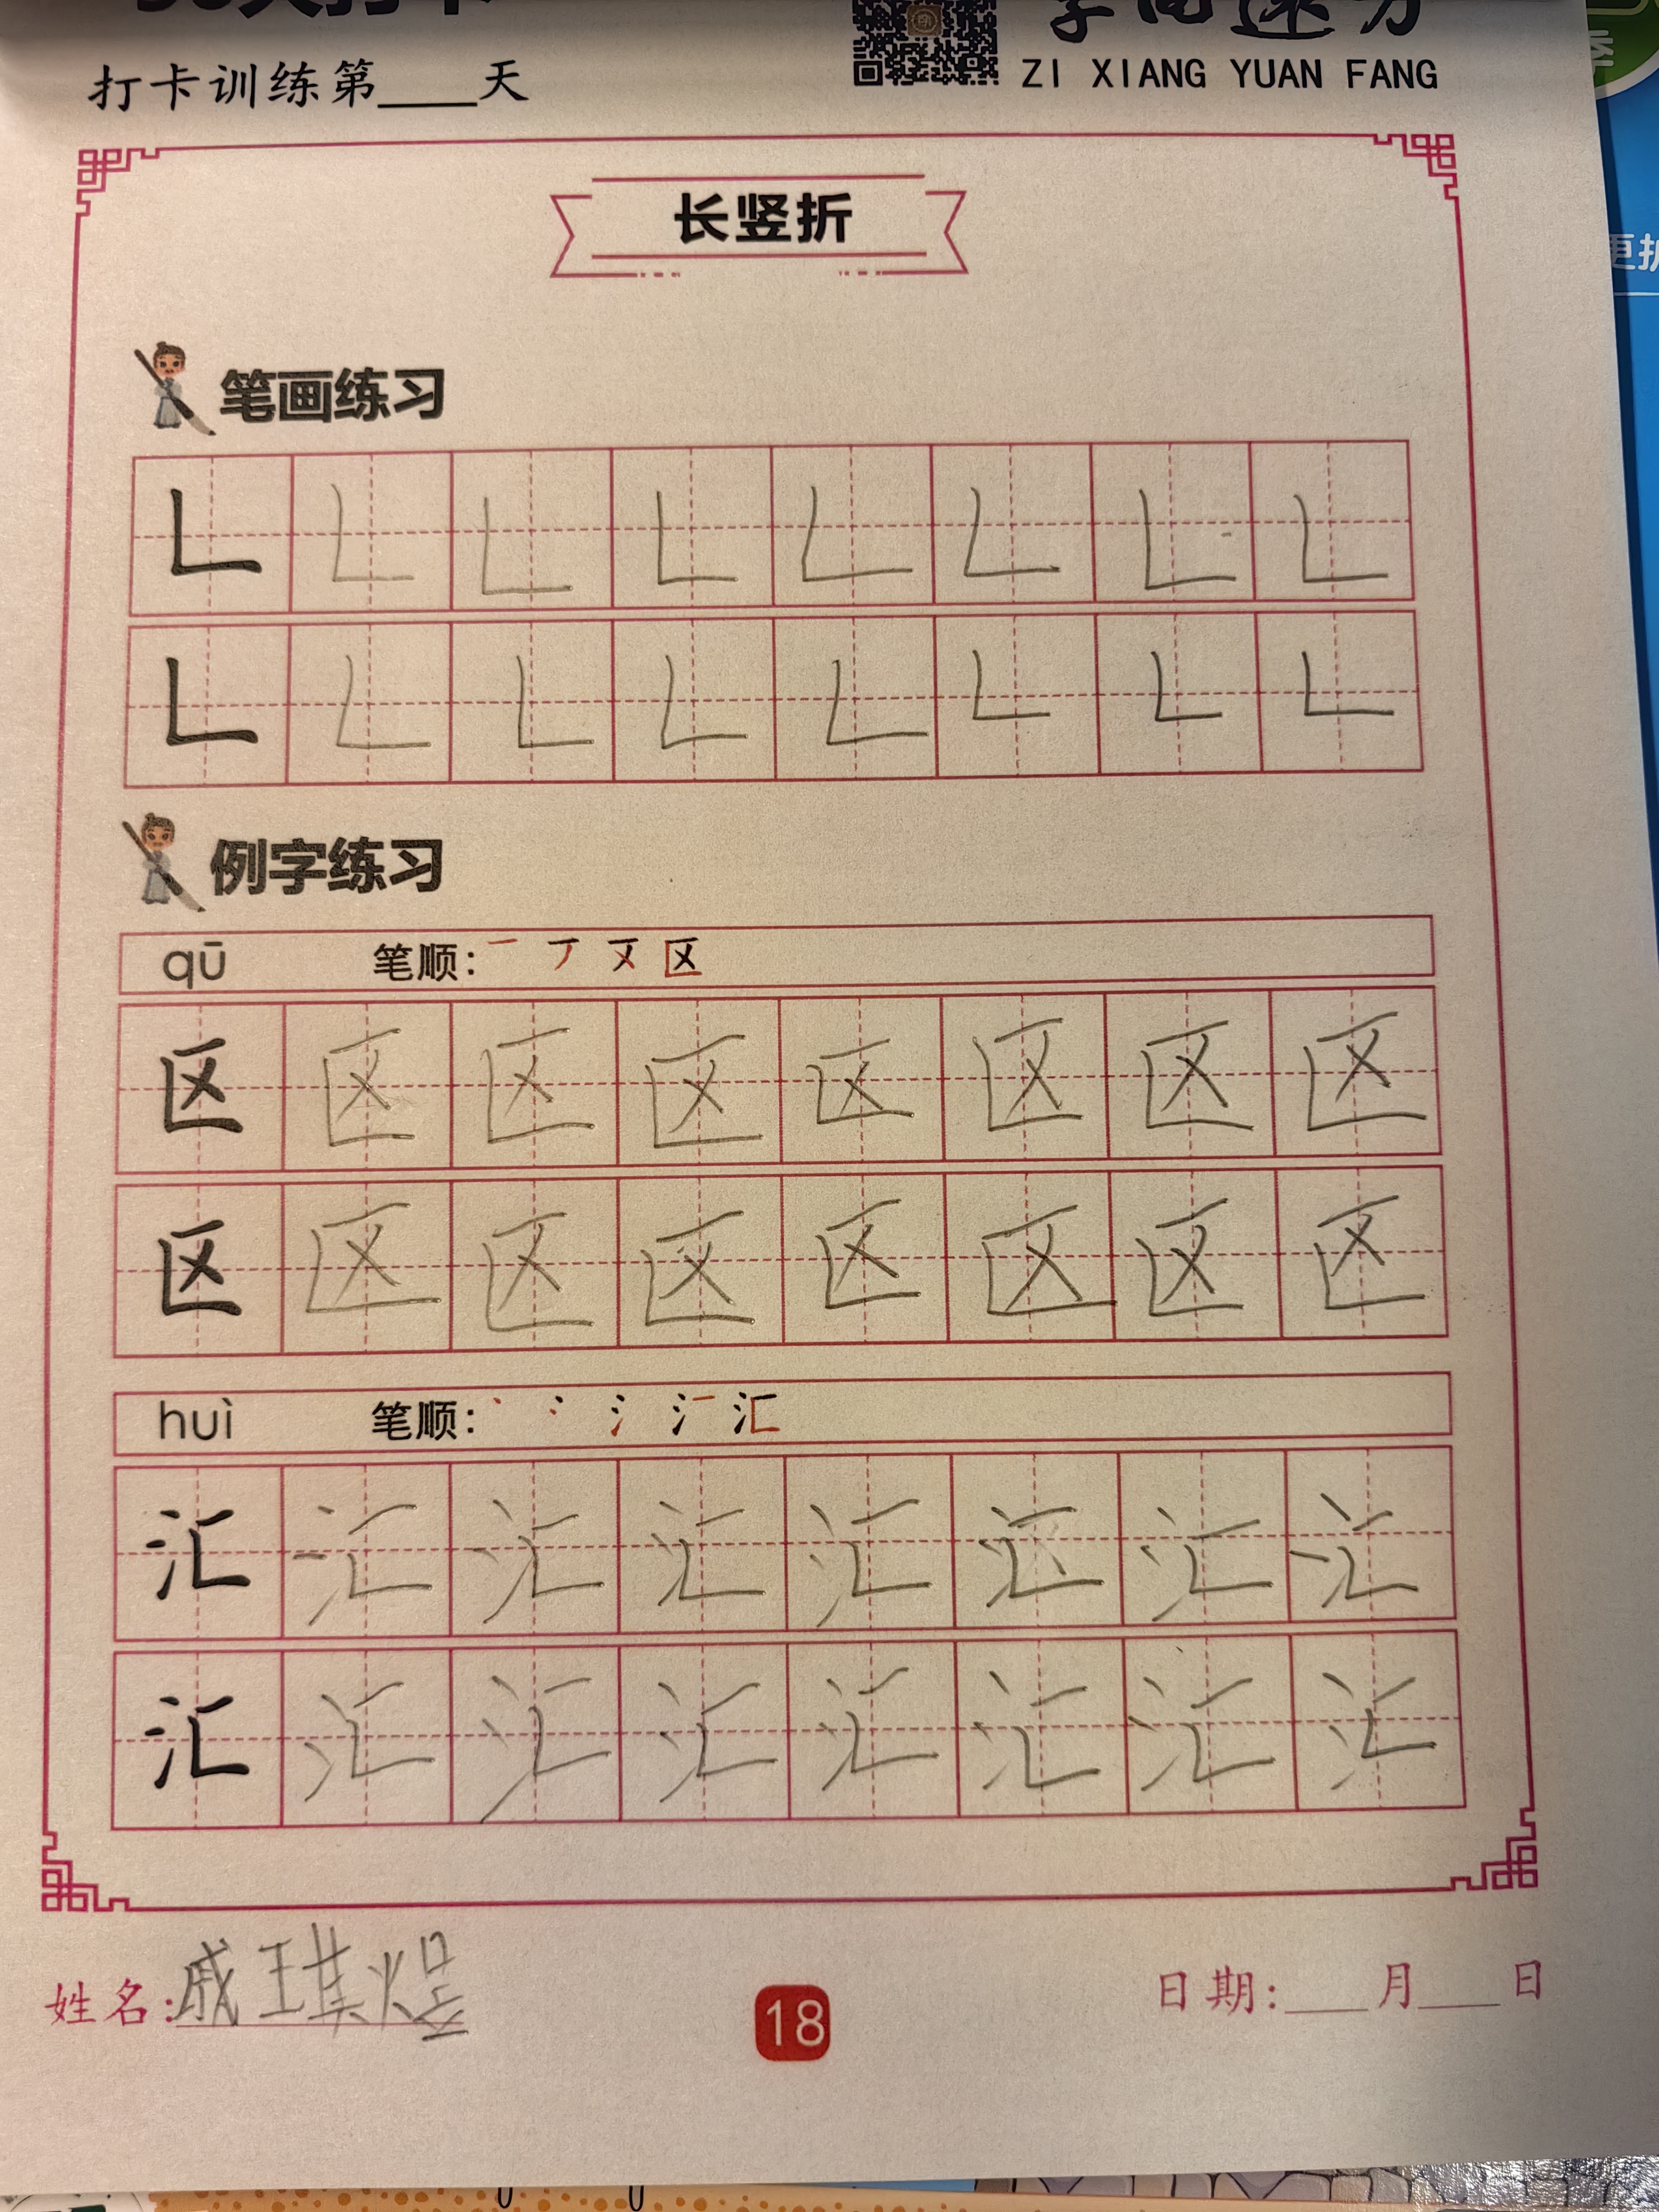 打卡训练第____天
ZI XIANG YUAN FANG
长竖折
笔画练习
𠃊 𠃊 𠃊 𠃊 𠃊 𠃊 𠃊 𠃊
𠃊 𠃊 𠃊 𠃊 𠃊 𠃊 𠃊 𠃊
例字练习
qū 笔顺: 区
区 区 区 区 区 区 区 区
区 区 区 区 区 区 区 区
huì 笔顺: 汇
汇 汇 汇 汇 汇 汇 汇 汇
汇 汇 汇 汇 汇 汇 汇 汇
姓名:戚琪煜
18
日期:____月____日